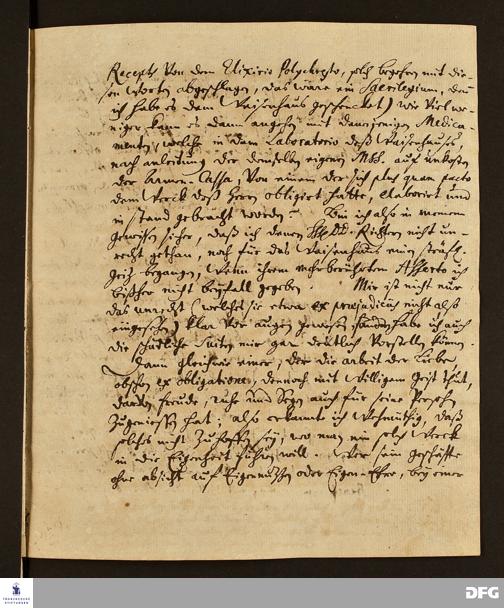 Recepts von dem Elixirio Polychresto, solch begehren mit die-
sen Worten abgeschlagen, das wäre ein Sacrilegium, den
ich habe es dem Waisenhaus geschencket) wie viel we-
niger kan es dann angehen mit denenjenigen Medica-
menten, welche in dem Laboratorio deß Waisenhauses,
nach anleitung der denselben eigenen Mss. auf unkosten
der Armen-Cassa, von einem der sich plus quam pacto
dem Werck deß Herrn obligirt hatte, elaborirt und
in stand gebracht worden. Bin ich also in meinem
gewissen sicher, daß ich denen Richtern nicht un-
recht gethan, noch für das Waisenhaus einen
geitz begangen, wenn ihrem mehrberührten Asserto ich
bißher nicht beyfall gegeben. Mir ist nicht nur
das unrecht (welches sie etwa ex praejudiciis nicht also
eingesehen) klar vor augen gewesen sondern habe ich auch
die schädliche Suiten mir gar deutlich vorstellen können.
Dann gleichwie einer, der die arbeit der Liebe
obschon ex obligatione, dennoch mit willigem Geist thut,
darvon freude, ruhe und Segen auch für seine Person
zugeniessen hat; also erkannte ich wehmüthig, daß
solches nicht zuhoffen sey, wo man ein solch Werck
in die Eigenheit führen will. Wer sein geschäffte
ohne absicht auf Eigennutzen oder Eigen-Ehre, bey einer
FRANCKESCHE STIFTUNGEN
DFG